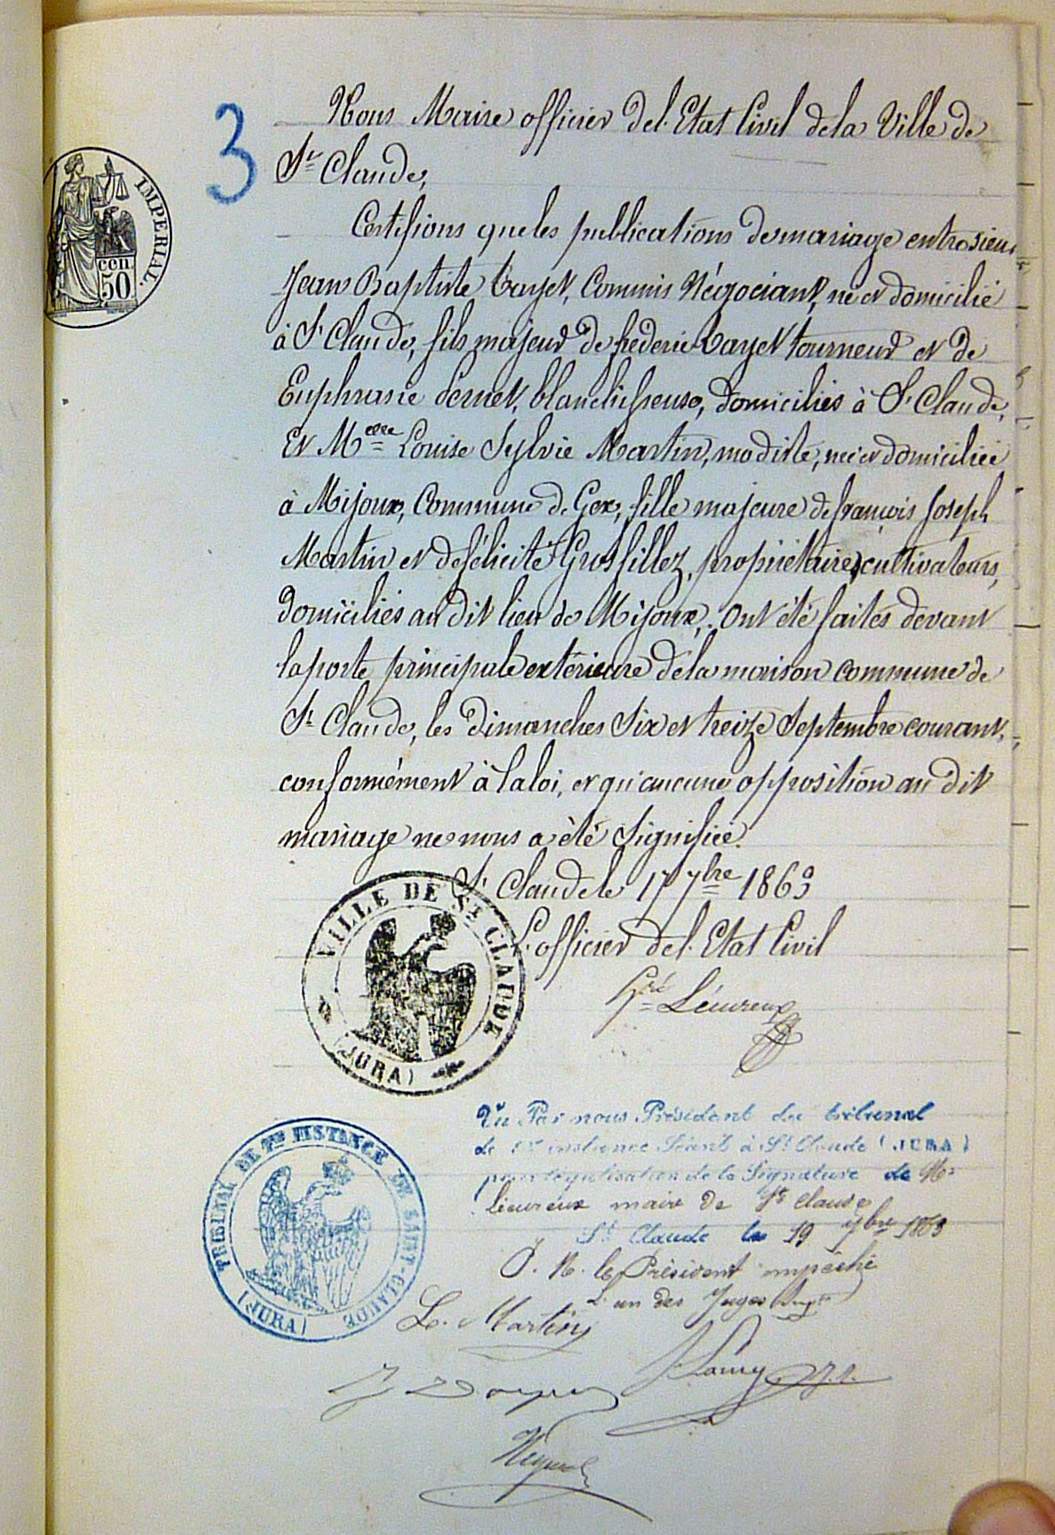 3
IMPERIAL.
cen.
50
Nous Maire officier de l'Etat Civil de la Ville de
St Claude,
Certifions que les publications de mariage entre sieur
Jean Baptiste Commis Négociant, né et domicilié
à St Claude, fils majeur de fréderic tourneur et de
Euphrasie blanchisseuse, domiciliés à St Claude,
Et Melle Louise Sylvie Martin, modiste, née et domiciliée
à Mijoux, Commune de Gex, fille majeure de françois Joseph
Martin et de félicité Grosfillez, propriétaires cultivateurs,
domiciliés au dit lieu de Mijoux, ont été faites devant
la porte principale extérieure de la maison commune de
St Claude, les dimanches six et treize Septembre courant,
conformément à la loi, et qu'aucune opposition au dit
mariage ne nous a été signifiée.
St Claude le 17 7bre 1863
L'officier de l'Etat Civil
Lécureux
VILLE DE ST CLAUDE
(JURA)
Vu Par nous Président du tribunal
de 1re instance Séant à St Claude (JURA)
pour légalisation de la Signature de Mr
Lécureux maire de St Claude
St Claude le 19 7bre 1863
P. M. le Président empêché
L'un des Juges
TRIBUNAL DE 1RE INSTANCE DE SAINT-CLAUDE
(JURA)
L. Martin